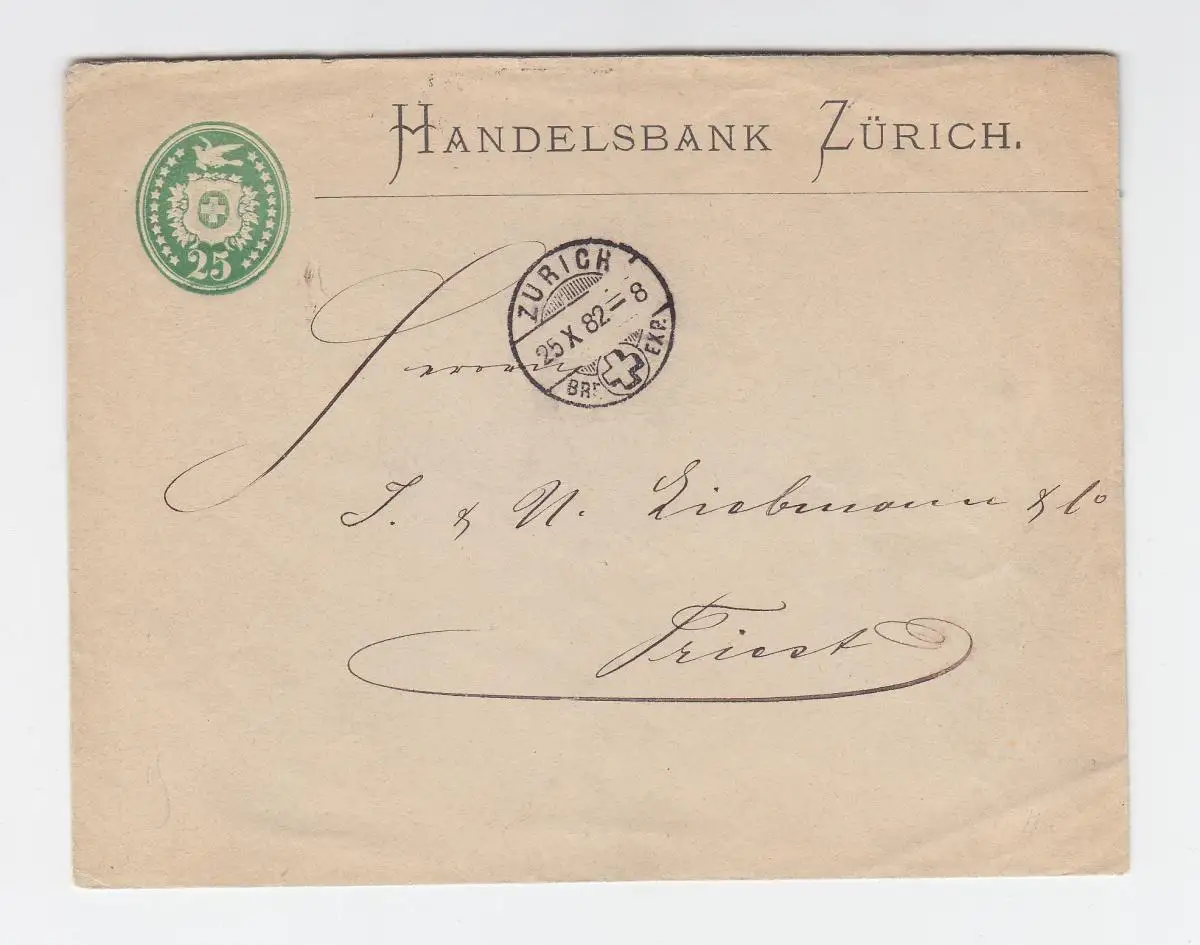 HANDELSBANK ZÜRICH.
25
ZÜRICH
25 X 82 = 8
EXP.
Herren
J. & N. Liebmann & Co
Triest